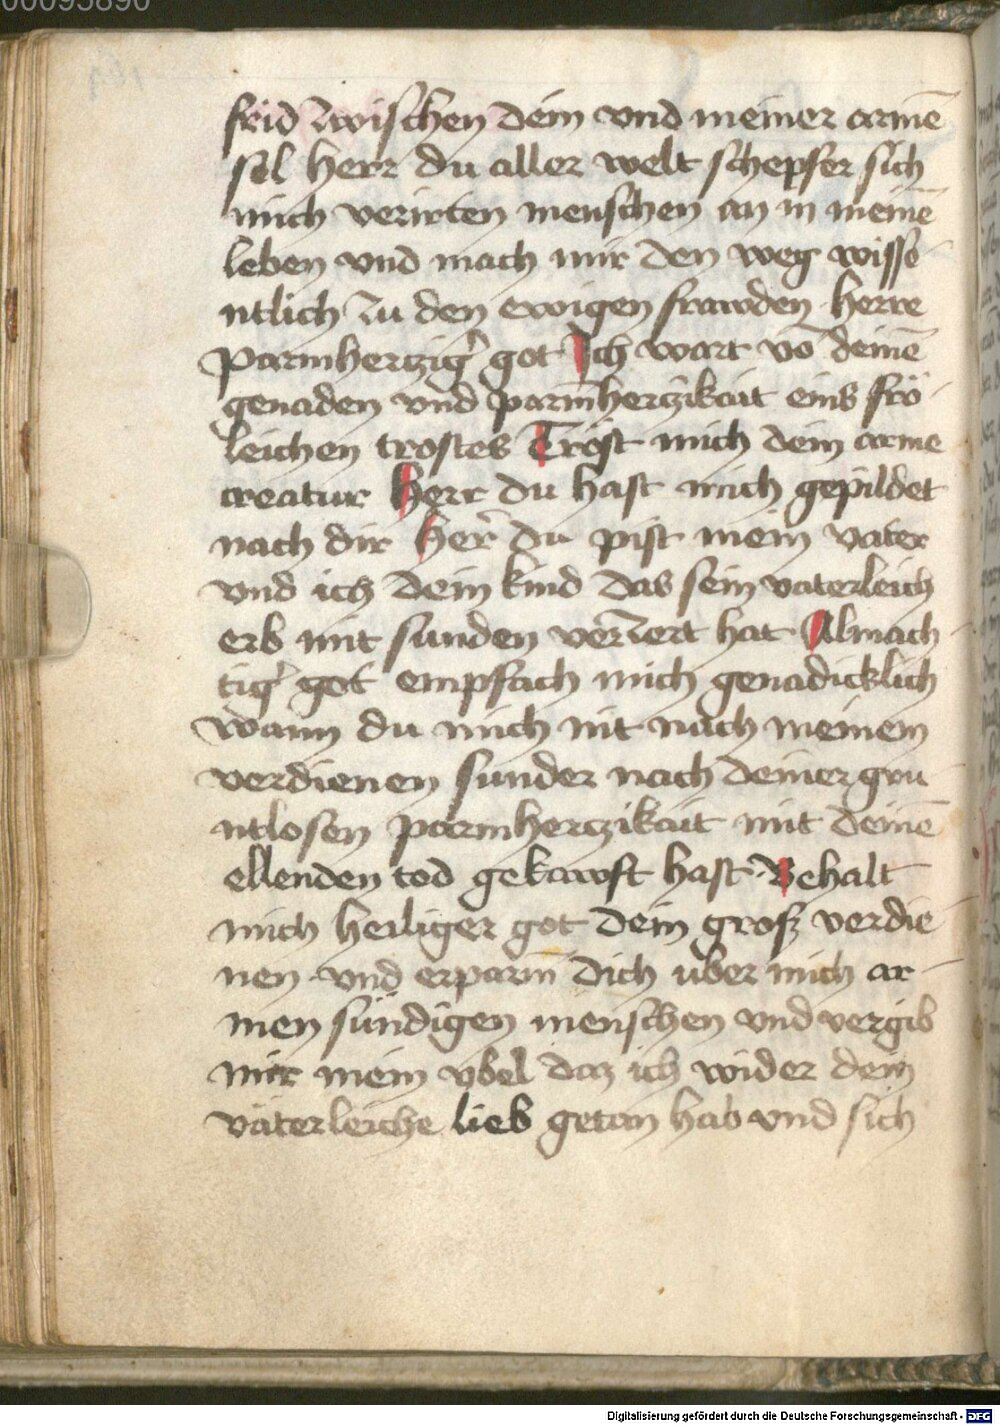 00095890
frid zwischen dein vnd meiner armē
sel herr du aller welt schepfer sich
mich verirten menschen an in meinē
leben vnd mach mir den weg wisse
ntlich zu den ewigen frawden herre
parmhertzig' got Ich wart vō deinē
genaden vnd parmhertzikait eins frö
leichen trostes Tröst mich dein arme
creatur Herr du hast mich gepildet
nach dir Her̄ du pist mein vater
vnd ich dein kind das sein vaterleich
erb mit sunden verzert hat Almach
tig' got empfach mich genadicklich
wann du mich nit nach meinem
verdienen sunder nach deiner gru
ntlosen parmhertzikait mit deinē
ellenden tod gekawft hast Behalt
mich heiliger got dein grosz verdie
nen vnd erparm dich uber mich ar
men sündigen menschen vnd vergib
mir mein vbel daz ich wider dein
väterleiche lieb getan hab vnd sich
Digitalisierung gefördert durch die Deutsche Forschungsgemeinschaft - DFG